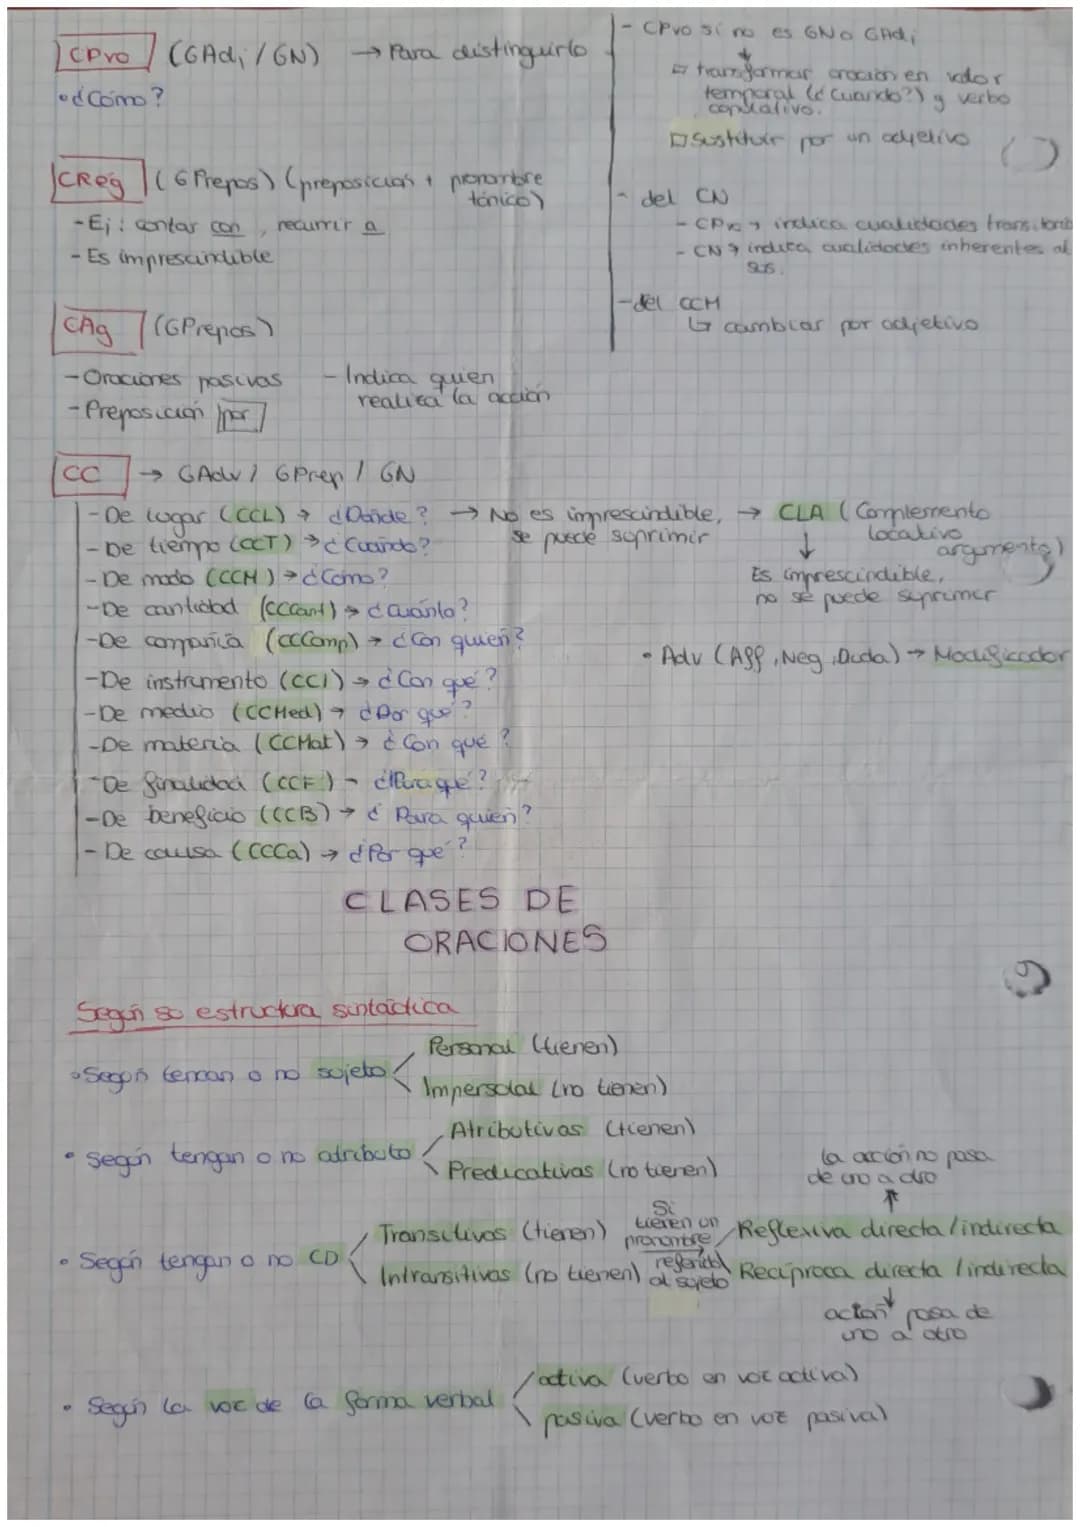 CPvo (GAdj / GN) → Para distinguirlo
• ¿Cómo?
- CPvo si no es GN o GAdj
↓
transformar oración en valor
temporal (¿Cuando?) y verbo
copulativo.
Sustituir por un adjetivo
- del CN
- CPvo → indica cualidades transitorias
- CN → indica cualidades inherentes al
sus.
- del CCM
↳ cambiar por adjetivo
CReg (GPrepos) (preposición + pronombre
tónico)
- Ej: contar con, recurrir a
- Es imprescindible
CAg (GPrepos)
- Oraciones pasivas
- Preposición por
- Indica quien
realiza la acción
CC → GAdv / GPrep / GN
- De lugar (CCL) → ¿Dónde? → No es imprescindible,
se puede suprimir
→ CLA (Complemento
locativo
argumental)
↓
Es imprescindible,
no se puede suprimir
- De tiempo (CCT) → ¿Cuándo?
- De modo (CCM) → ¿Cómo?
- De cantidad (CCCant) → ¿Cuánto?
- De compañía (CCComp) → ¿Con quién?
• Adv (Aff, Neg, Duda) → Modificador
- De instrumento (CCI) → ¿Con qué?
- De medio (CCMed) → ¿Por qué?
- De materia (CCMat) → ¿Con qué?
- De finalidad (CCF) → ¿Para qué?
- De beneficio (CCB) → ¿Para quién?
- De causa (CCCa) → ¿Por qué?
CLASES DE
ORACIONES
Según so estructura sintáctica
• Según tengan o no sujeto
Personal (tienen)
Impersolal (no tienen)
• Según tengan o no atributo
Atributivas (tienen)
Predicativas (no tienen)
• Según tengan o no CD
Transitivas (tienen)
Intransitivas (no tienen)
Si
tienen un
pronombre
referido
al sujeto
la acción no pasa
de uno a otro
↑
Reflexiva directa / indirecta
Recíproca directa / indirecta
↓
action pasa de
uno a otro
• Según la voz de la forma verbal
activa (verbo en voz activa)
pasiva (verbo en voz pasiva)